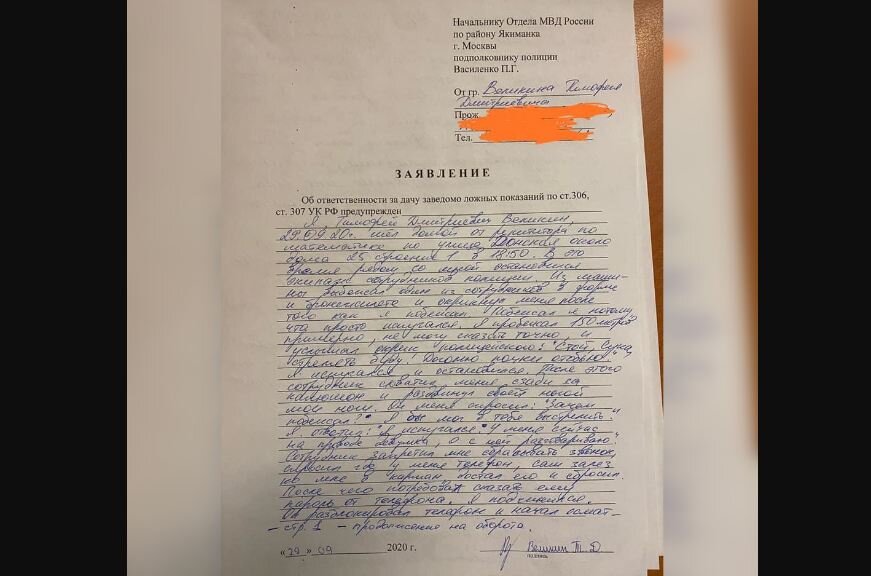 Начальнику Отдела МВД России
по району Якиманка
г. Москвы
подполковнику полиции
Василенко П.Г.
От гр. Великина Тимофея
Дмитриевича
Прож.
Тел.
ЗАЯВЛЕНИЕ
Об ответственности за дачу заведомо ложных показаний по ст.306,
ст. 307 УК РФ предупрежден
Я, Тимофей Дмитриевич Великин,
29.09.20г. шел домой от репетитора по
математике по улице Донская около
дома 25 строения 1 в 18:50. В это
время рядом со мной остановился
экипаж сотрудников полиции. Из маши-
ны выбежал один из сотрудников в форме
и бронежилете и окрикнул меня после
того как я побежал. Побежал я потому,
что просто испугался. Я пробежал 150 метров
примерно, не могу сказать точно и
услышал окрик полицейского: "Стой, Сука,
стрелять буду!
Я испугался и остановился. После этого
сотрудник схватил меня сзади за
капюшон и раздвинул своей ногой
мои ноги. Он меня спросил: "Зачем
побежал?" Я бы мог в тебя выстрелить"
Я ответил: "Я испугался. У меня сейчас
на проводе девушка, а с ней разговариваю."
Сотрудник запретил мне сбрасывать звонок,
спросил где у меня телефон, сам залез
ко мне в карман, достал его и сбросил.
После чего потребовал сказать ему
пароль от телефона. Я подчинился.
Он разблокировал телефон и начал осмат-
- стр. 1 - продолжение на обороте.
«29» 09 2020 г. Великин Т. Д
подпись